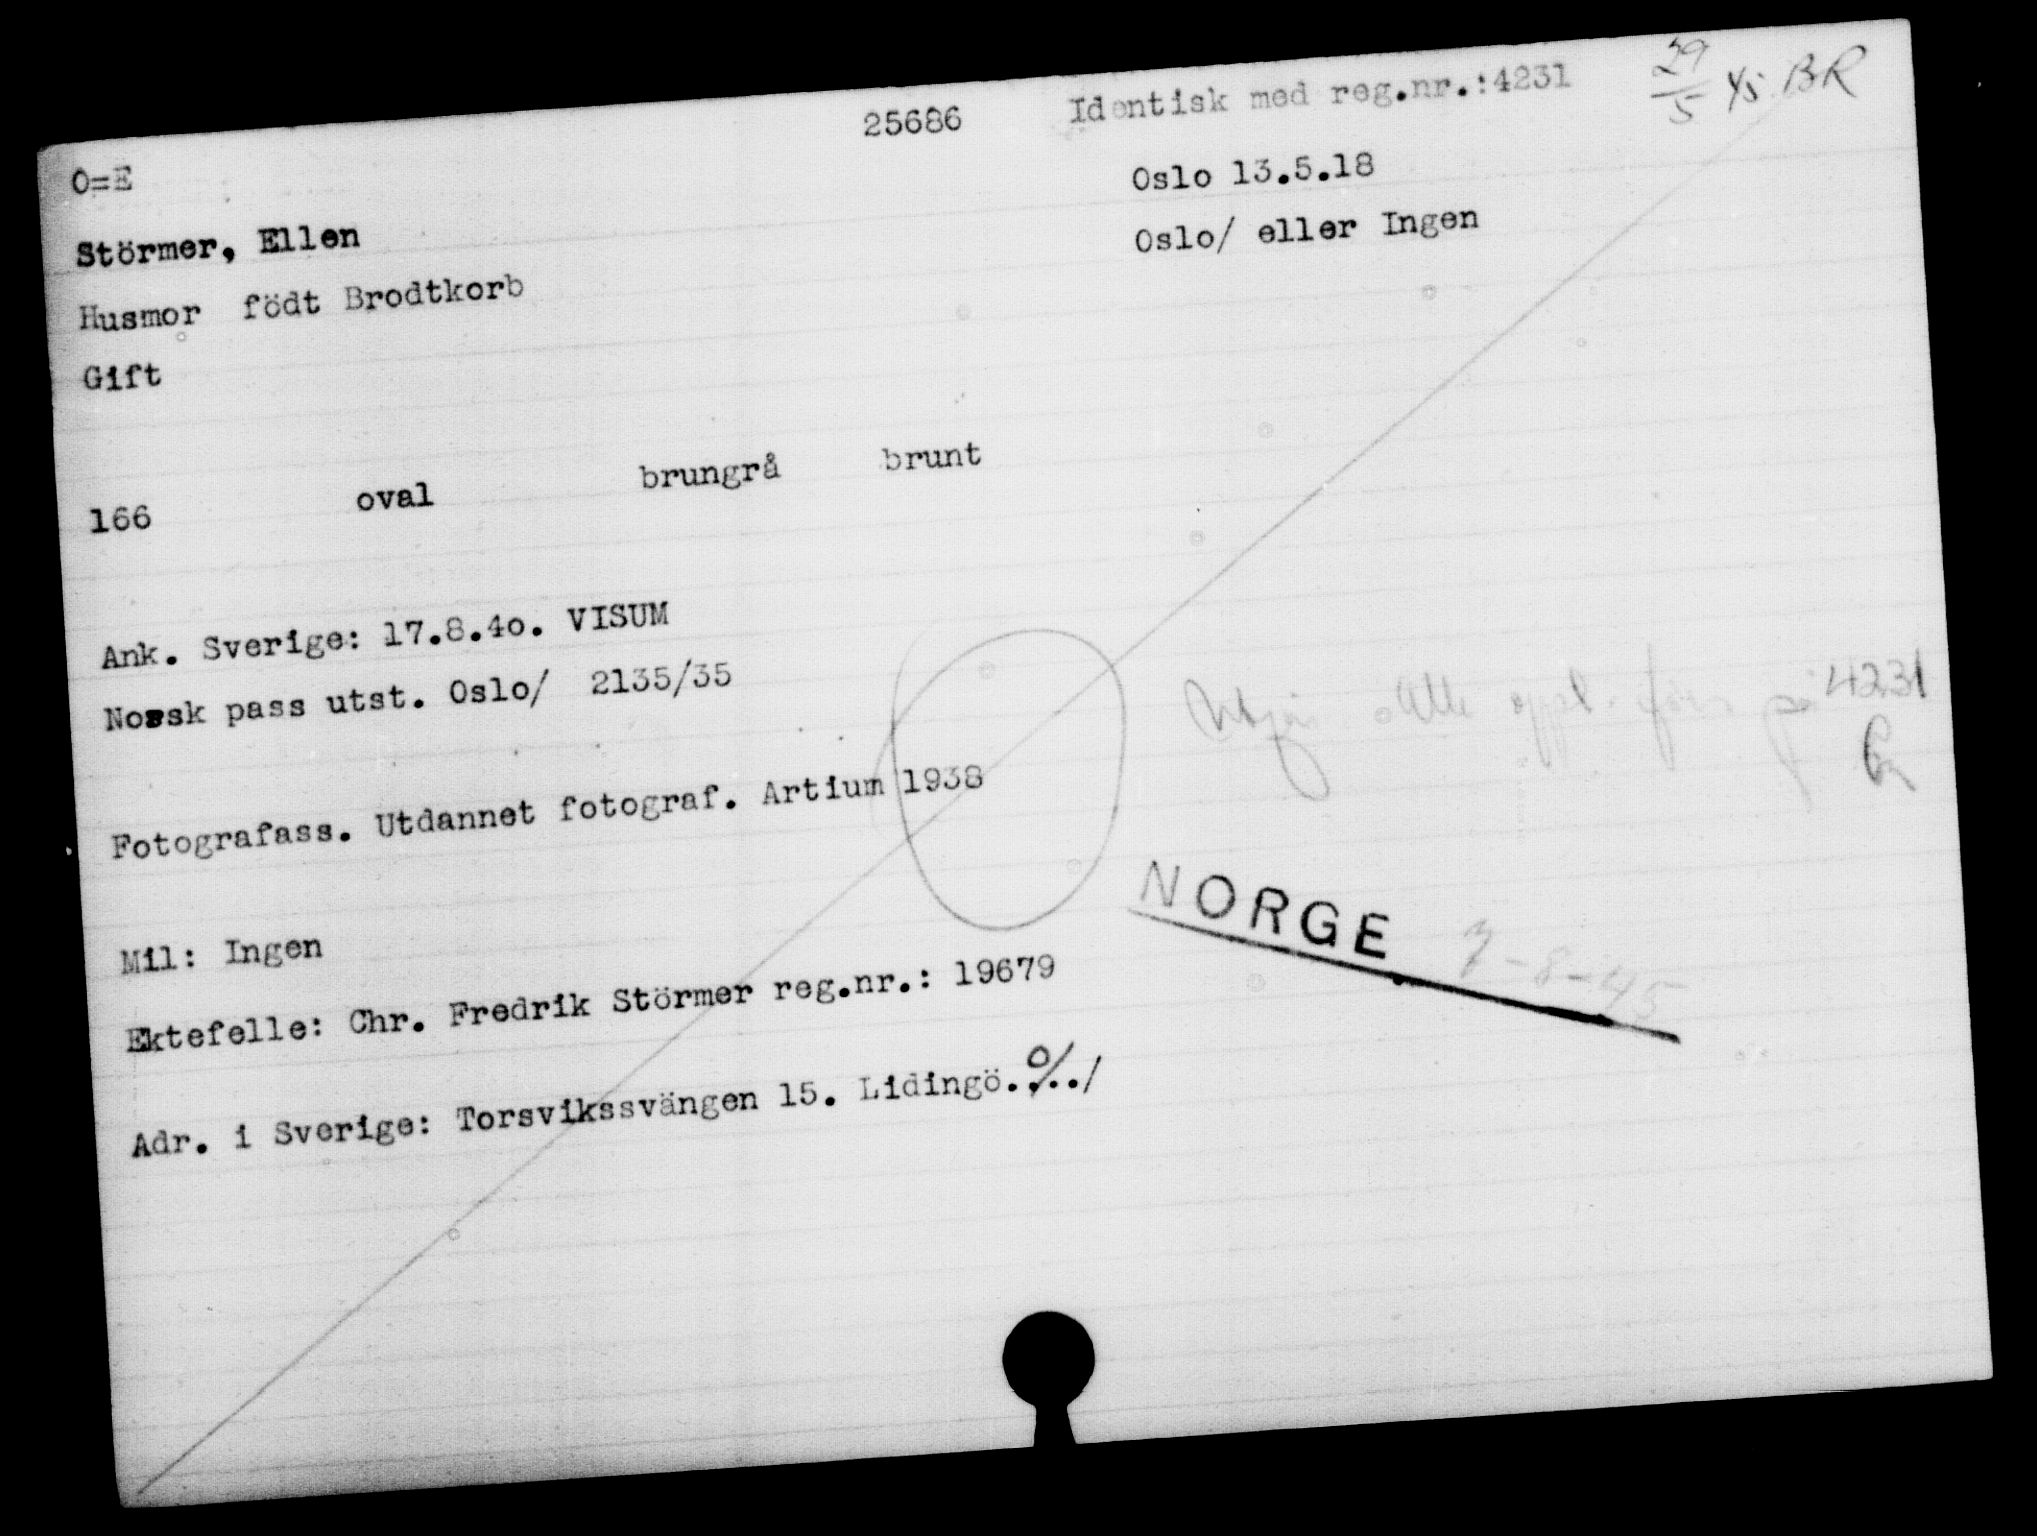 25686 Identisk med reg.nr.:4231 29/5 45 BR
O=E
Oslo 13.5.18
Störmer, Ellen
Oslo/ eller Ingen
Husmor födt Brodtkorb
Gift
166 oval brungrå brunt
Ank. Sverige: 17.8.4o. VISUM
Norsk pass utst. Oslo/ 2135/35
Alle oppl. förs på 4231
Fotografass. Utdannet fotograf. Artium 1938
NORGE 7-8-45
Mil: Ingen
Ektefelle: Chr. Fredrik Störmer reg.nr.: 19679
Adr. i Sverige: Torsvikssvängen 15. Lidingö. o/../